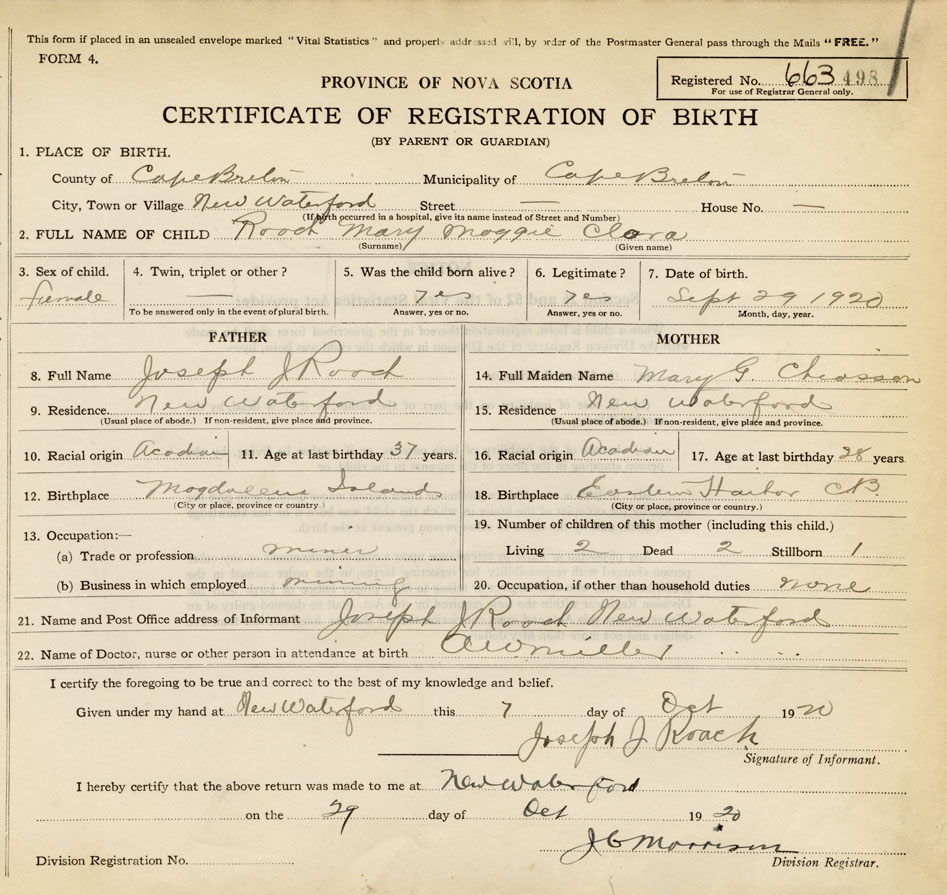 This form if placed in an unsealed envelope marked "Vital Statistics" and properly addressed will, by order of the Postmaster General pass through the Mails "FREE."
FORM 4.
Registered No. 663 498
For use of Registrar General only.
PROVINCE OF NOVA SCOTIA
CERTIFICATE OF REGISTRATION OF BIRTH
(BY PARENT OR GUARDIAN)
1. PLACE OF BIRTH.
County of Cape Breton Municipality of Cape Breton
City, Town or Village New Waterford Street — House No. —
(If birth occurred in a hospital, give its name instead of Street and Number)
2. FULL NAME OF CHILD Roach Mary Maggie Clara
(Surname) (Given name)
3. Sex of child. 4. Twin, triplet or other? 5. Was the child born alive? 6. Legitimate? 7. Date of birth.
female — yes yes Sept 29 1920
To be answered only in the event of plural birth. Answer, yes or no. Answer, yes or no. Month, day, year.
FATHER MOTHER
8. Full Name Joseph J Roach 14. Full Maiden Name Mary G. Chiasson
9. Residence. New Waterford 15. Residence New Waterford
(Usual place of abode.) If non-resident, give place and province. (Usual place of abode.) If non-resident, give place and province.
10. Racial origin Acadian 11. Age at last birthday 37 years. 16. Racial origin Acadian 17. Age at last birthday 28 years
12. Birthplace Magdalens Islands 18. Birthplace Eastern Harbor CB.
(City or place, province or country.) (City or place, province or country.)
13. Occupation:— 19. Number of children of this mother (including this child.)
(a) Trade or profession miner Living 2 Dead 2 Stillborn 1
(b) Business in which employed mining 20. Occupation, if other than household duties none
21. Name and Post Office address of Informant Joseph J Roach New Waterford
22. Name of Doctor, nurse or other person in attendance at birth miller
I certify the foregoing to be true and correct to the best of my knowledge and belief.
Given under my hand at New Waterford this 7 day of Oct 1920
Joseph J Roach
Signature of Informant.
I hereby certify that the above return was made to me at New Waterford
on the 29 day of Oct 1920
J G Morrison
Division Registrar.
Division Registration No.